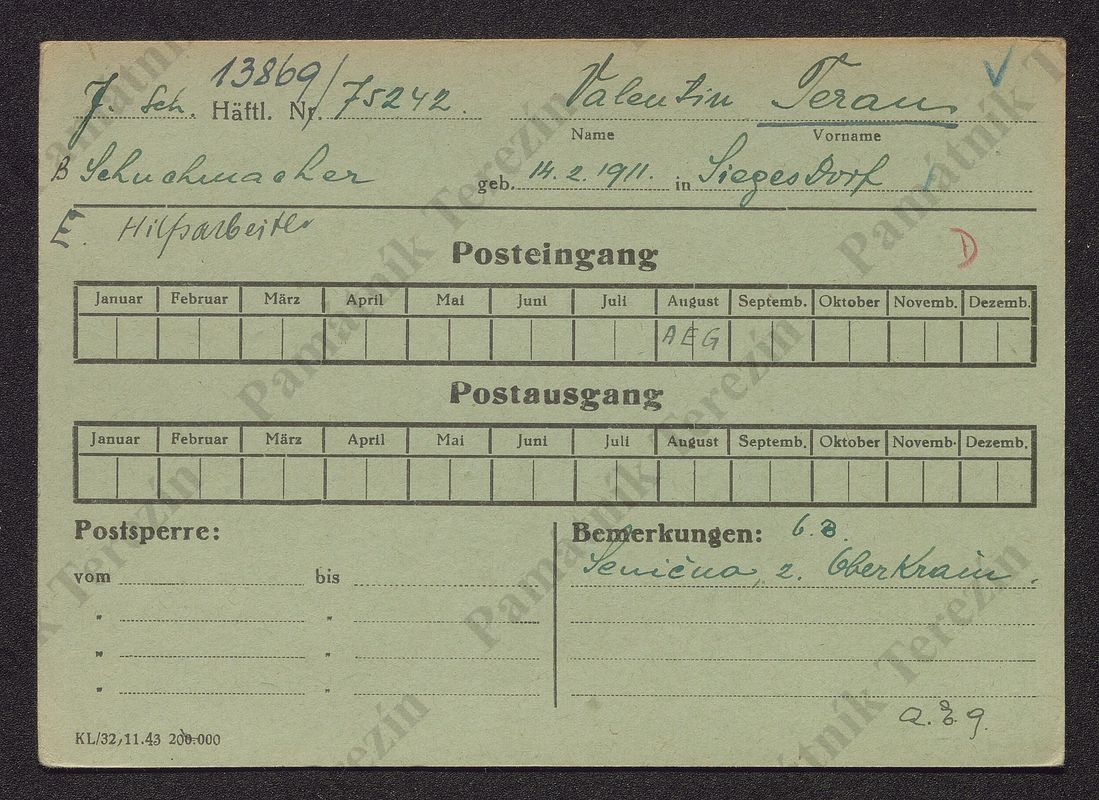 J. Sch. Häftl. Nr. 13869/75242. Valentin Teran
Name Vorname
B Schuchmacher geb. 14. 2. 1911. in Siegesdorf
E. Hilfsarbeiter
D
Posteingang
Januar Februar März April Mai Juni Juli August Septemb. Oktober Novemb. Dezemb.
AEG
Postausgang
Januar Februar März April Mai Juni Juli August Septemb. Oktober Novemb. Dezemb.
Postsperre: Bemerkungen: 6.B.
vom bis Seničua z. Oberkrain.
" "
" "
" "
a. E. g.
KL/32, 11.43 200.000
Památník Terezín